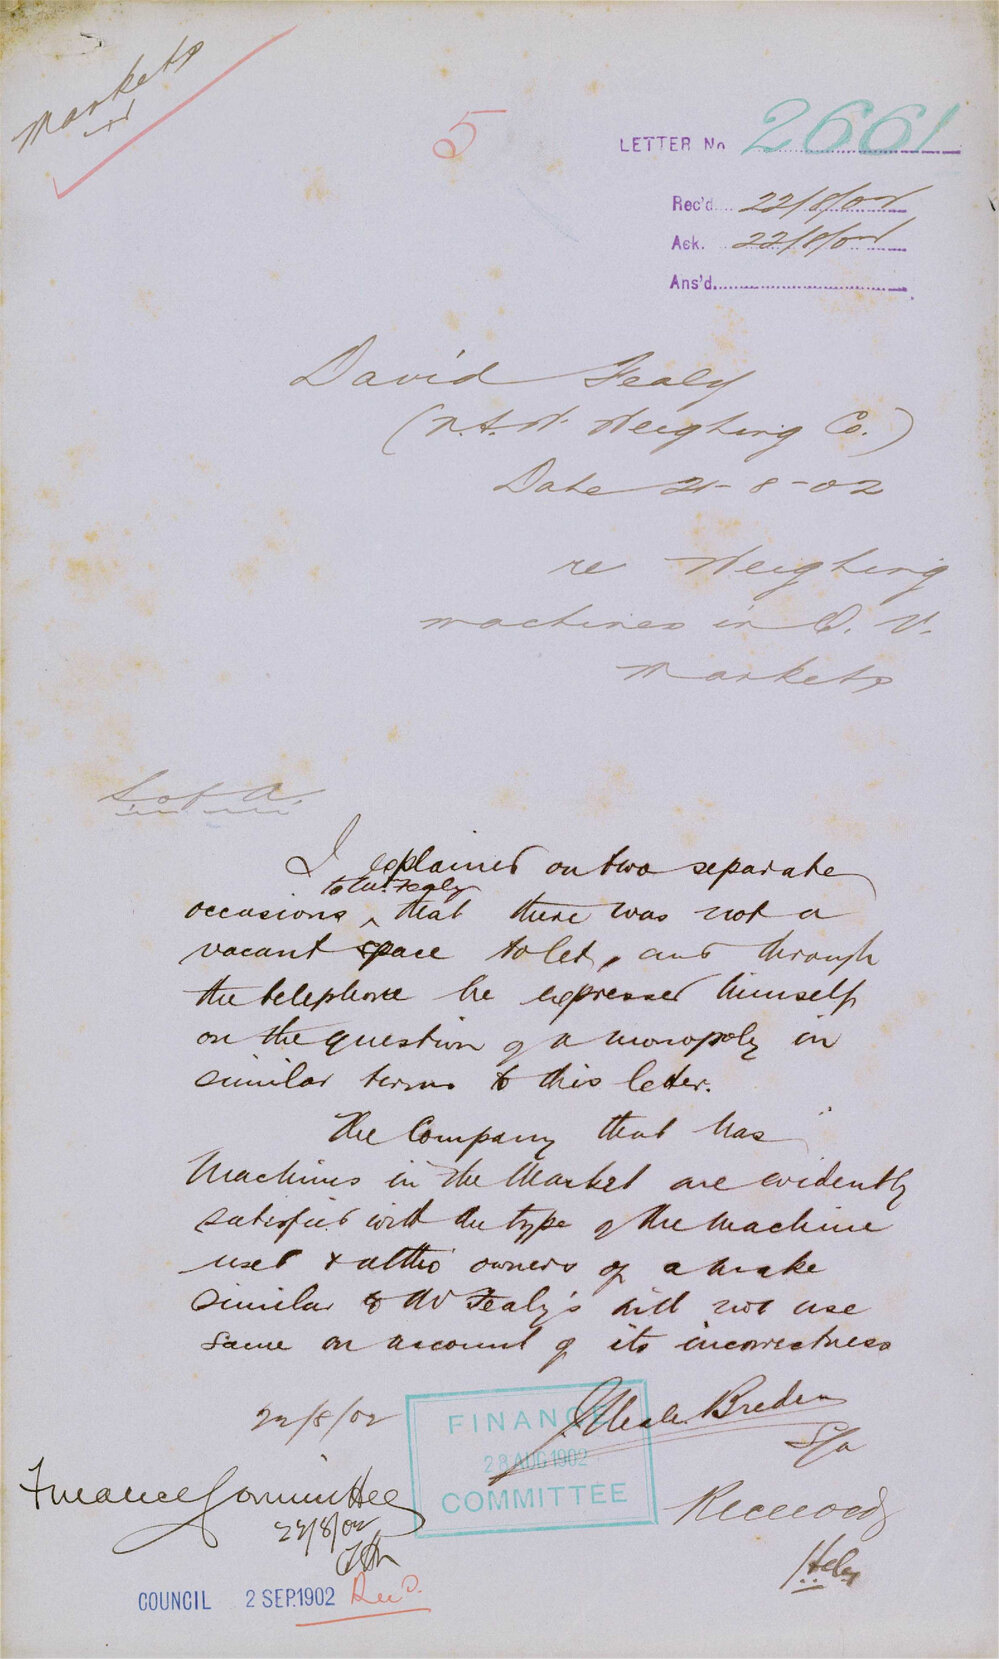 Markets
5
LETTER No 2661
Rec'd 22/8/02
Ack. 22/8/02
Ans'd
David Fealy
(N.S.W. Weighing Co.)
Date 21-8-02
re Weighing
machines in Q. V.
Markets
S of A.
I explained on two separate
to Mr Fealy
occasions ^ that there was not a
vacant space to let, and through
the telephone he expressed himself
on the question of a monopoly in
similar terms to this letter.
The Company that has
Machines in the Market are evidently
satisfied with the type of the machine
used & altho' owners of a make
similar to Mr Fealy's will not use
same on account of its incorrectness
22/8/02
Breden
S/a
FINANCE
28 AUG 1902
COMMITTEE
Finance Committee
22/8/02
Received
COUNCIL 2 SEP.1902 Rec'd.